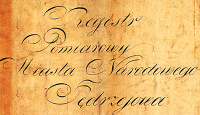 Regestr
Pomiarowy
Miasta Narodowego
Jędrzejowa